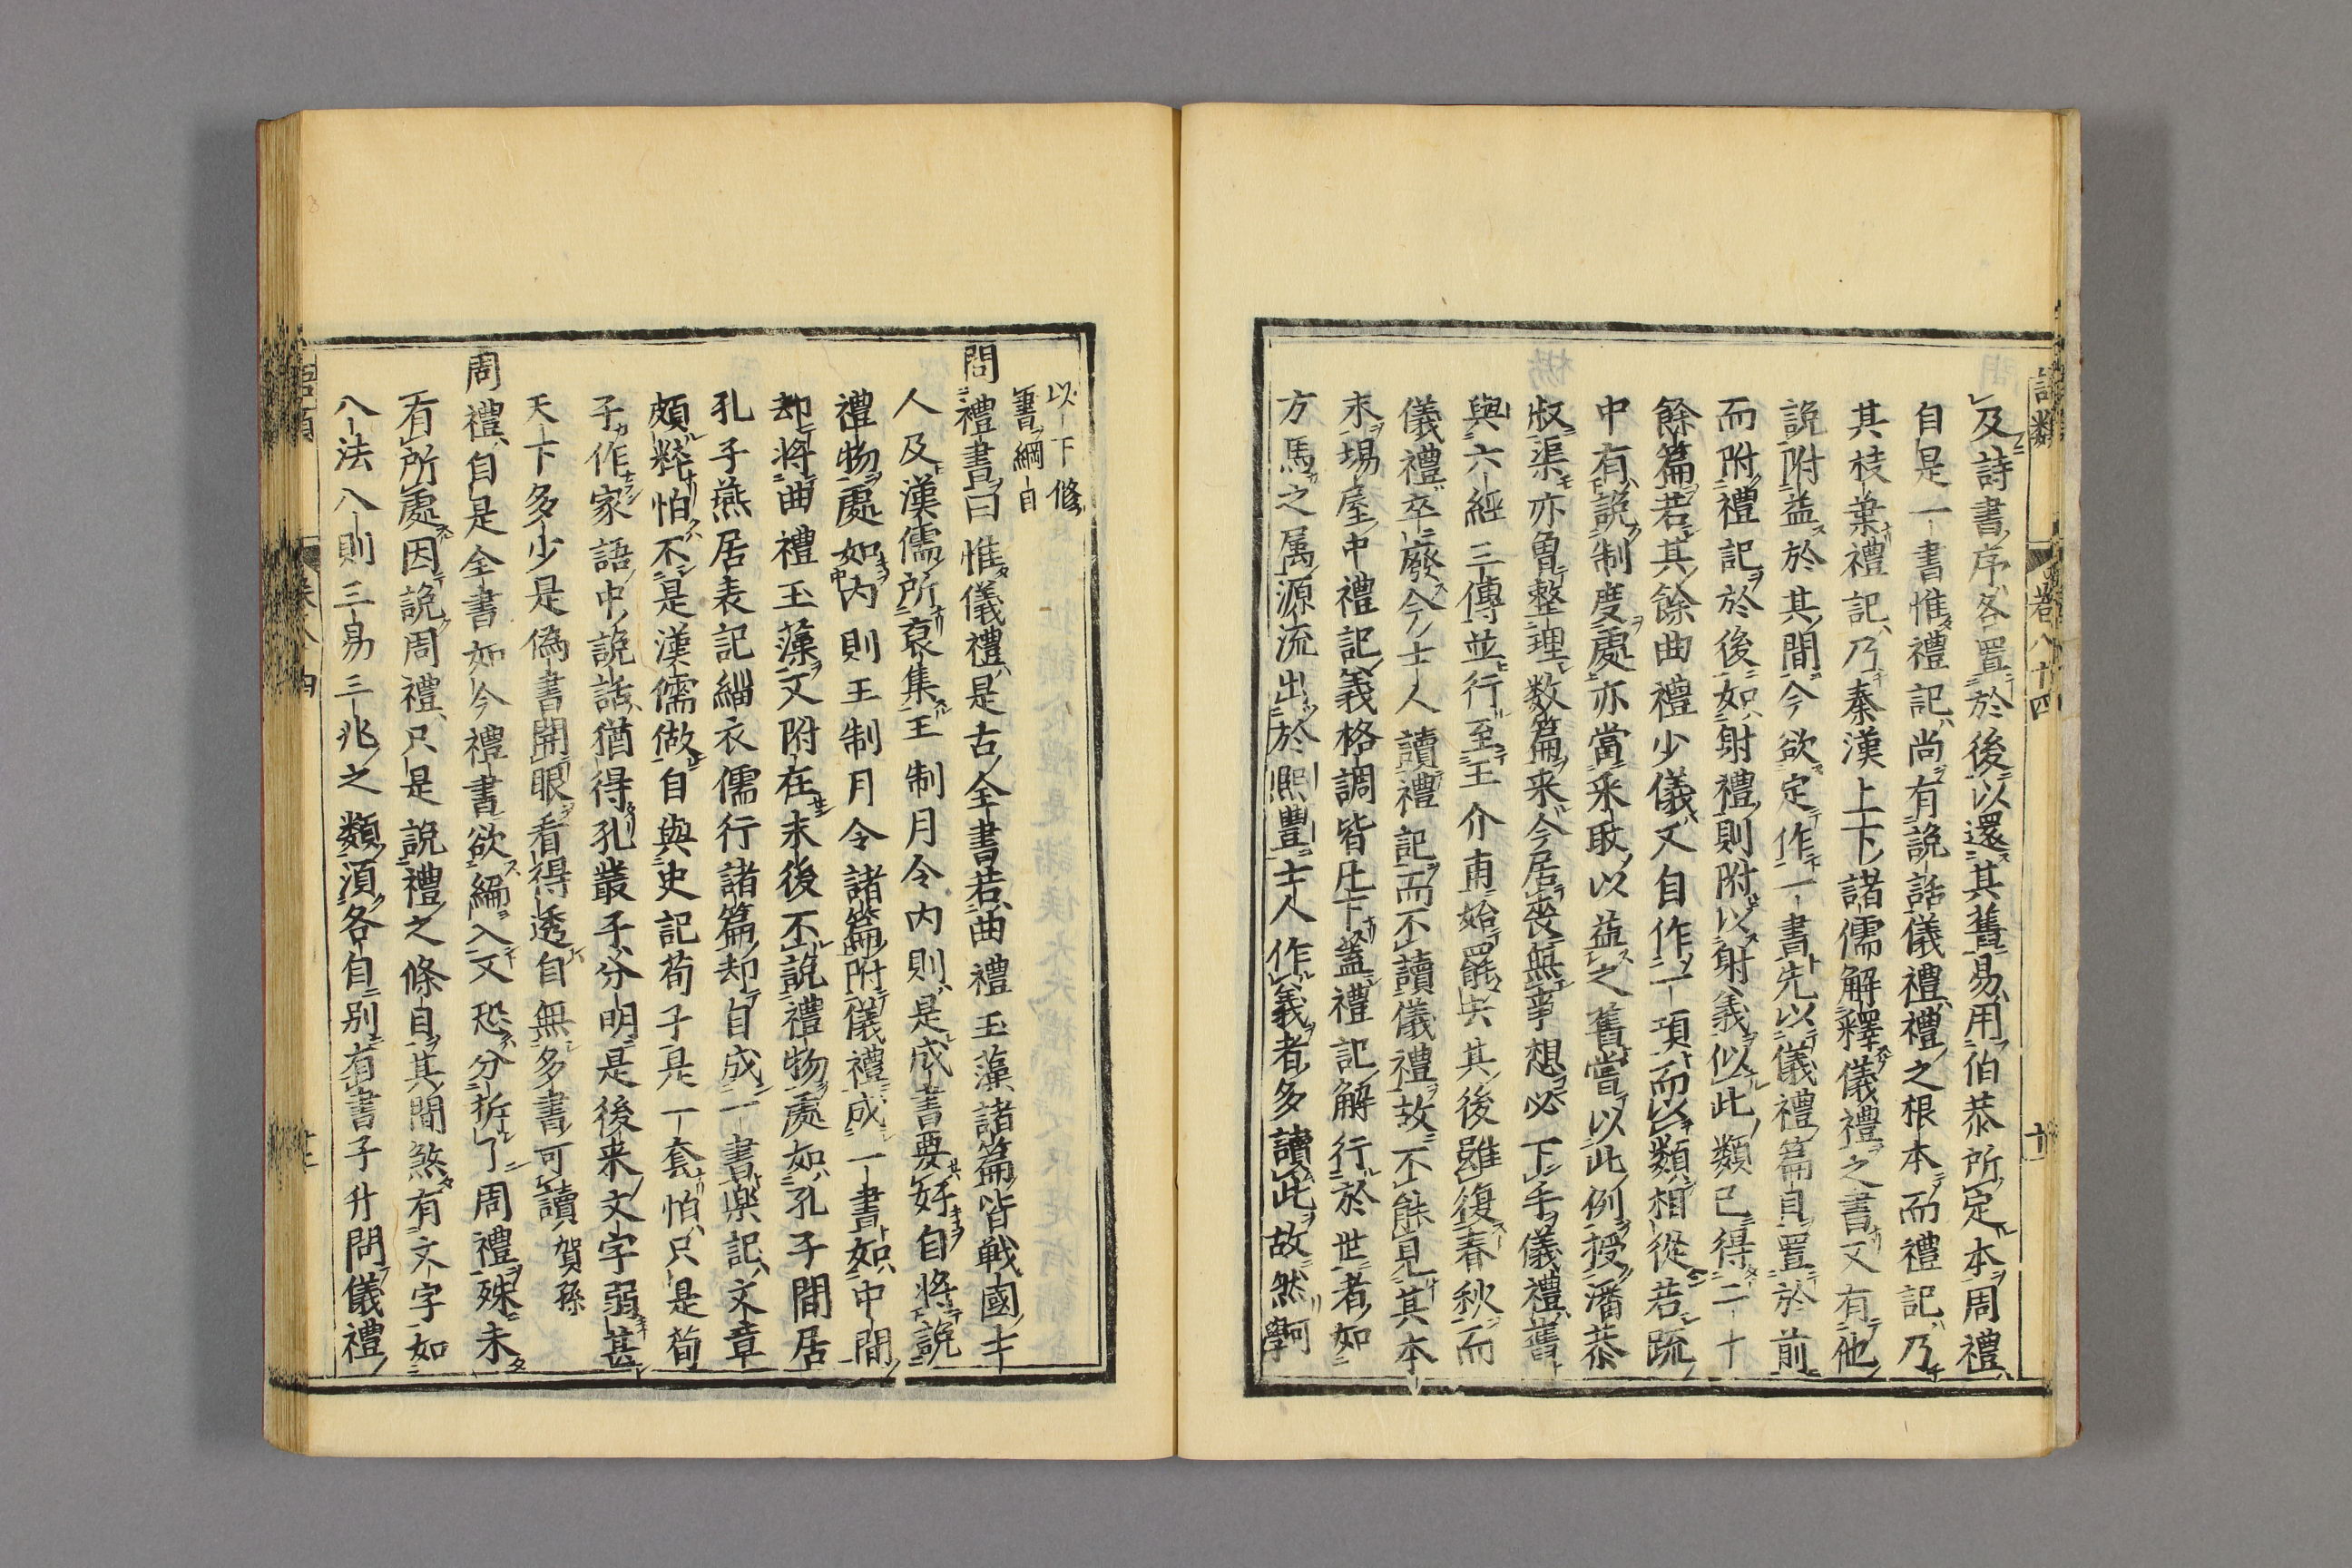 語類 卷八十四 十
及詩書序各置於後以還其舊易用伯恭所定本周禮
自是一書惟禮記尚有說話儀禮禮之根本而禮記乃
其枝葉禮記乃秦漢上下諸儒解釋儀禮之書又有他
說附益於其間今欲定作一書先以儀禮篇目置於前
而附禮記於後如射禮則附以射義似此類已得二十
餘篇若其餘曲禮少儀又自作一項而以類相從若疏
中有說制度處亦當采取以益之舊嘗以此例授潘恭
叔渠亦曾整理數篇来今居喪無事想必下手儀禮舊
與六經三傳並行至王介甫始罷去其後雖復春秋而
儀禮卒廢今士人讀禮記而不讀儀禮故不能見其本
末場屋中禮記義格調皆凡下蓋禮記解行於世者如
方馬之属源流出於熙豐士人作義者多讀此故然
以下修
書綱目
問禮書曰惟儀禮是古全書若曲禮玉藻諸篇皆戦國士
人及漢儒所裒集王制月令内則是成書要好自將說
禮物處如内則王制月令諸篇附儀禮成一書如中間
却將曲禮玉藻又附在末後不說禮物處如孔子閒居
孔子燕居表記緇衣儒行諸篇却自成一書樂記文章
頗粹怕不是漢儒做自與史記荀子是一套怕只是荀
子作家語中說話猶得孔叢子分明是後来文字弱甚
天下多少是偽書開眼看得透自無多書可讀賀孫
周禮自是全書如今禮書欲編入又恐分拆了周禮殊未
有所處因說周禮只是說禮之條目其間煞有文字如
八法八則三易三兆之類須各自別有書子升問儀禮